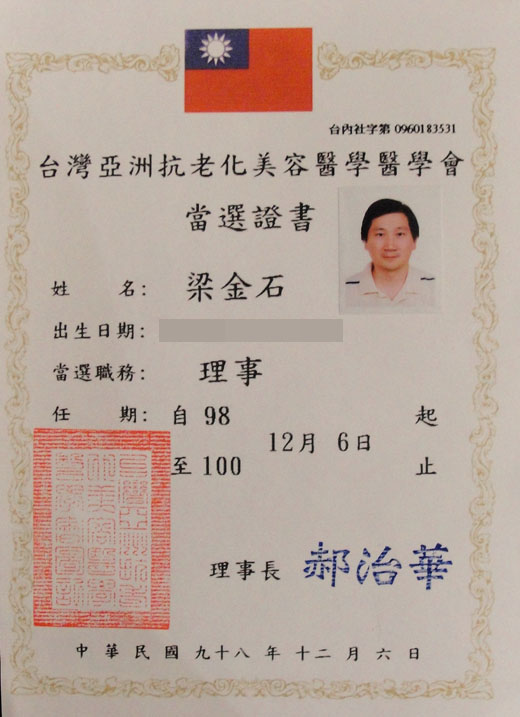 台內社字第 0960183531
台灣亞洲抗老化美容醫學醫學會
當選證書
姓 名: 梁金石
出生日期:
當選職務: 理事
任 期: 自 98 起
12月 6日
至 100 止
理事長 郝治華
中華民國九十八年十二月六日